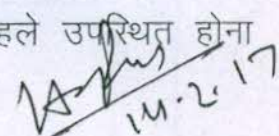 हले उपस्थित होना
14.2.17